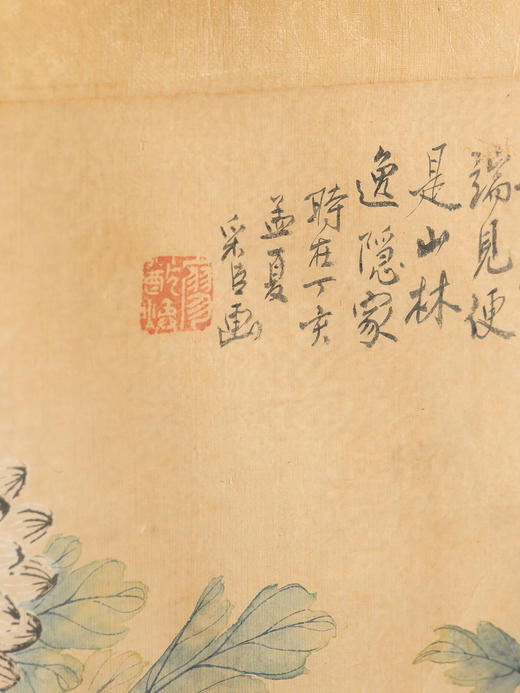 端見便
是山林
逸隠家
時在丁亥
孟夏
采臣画